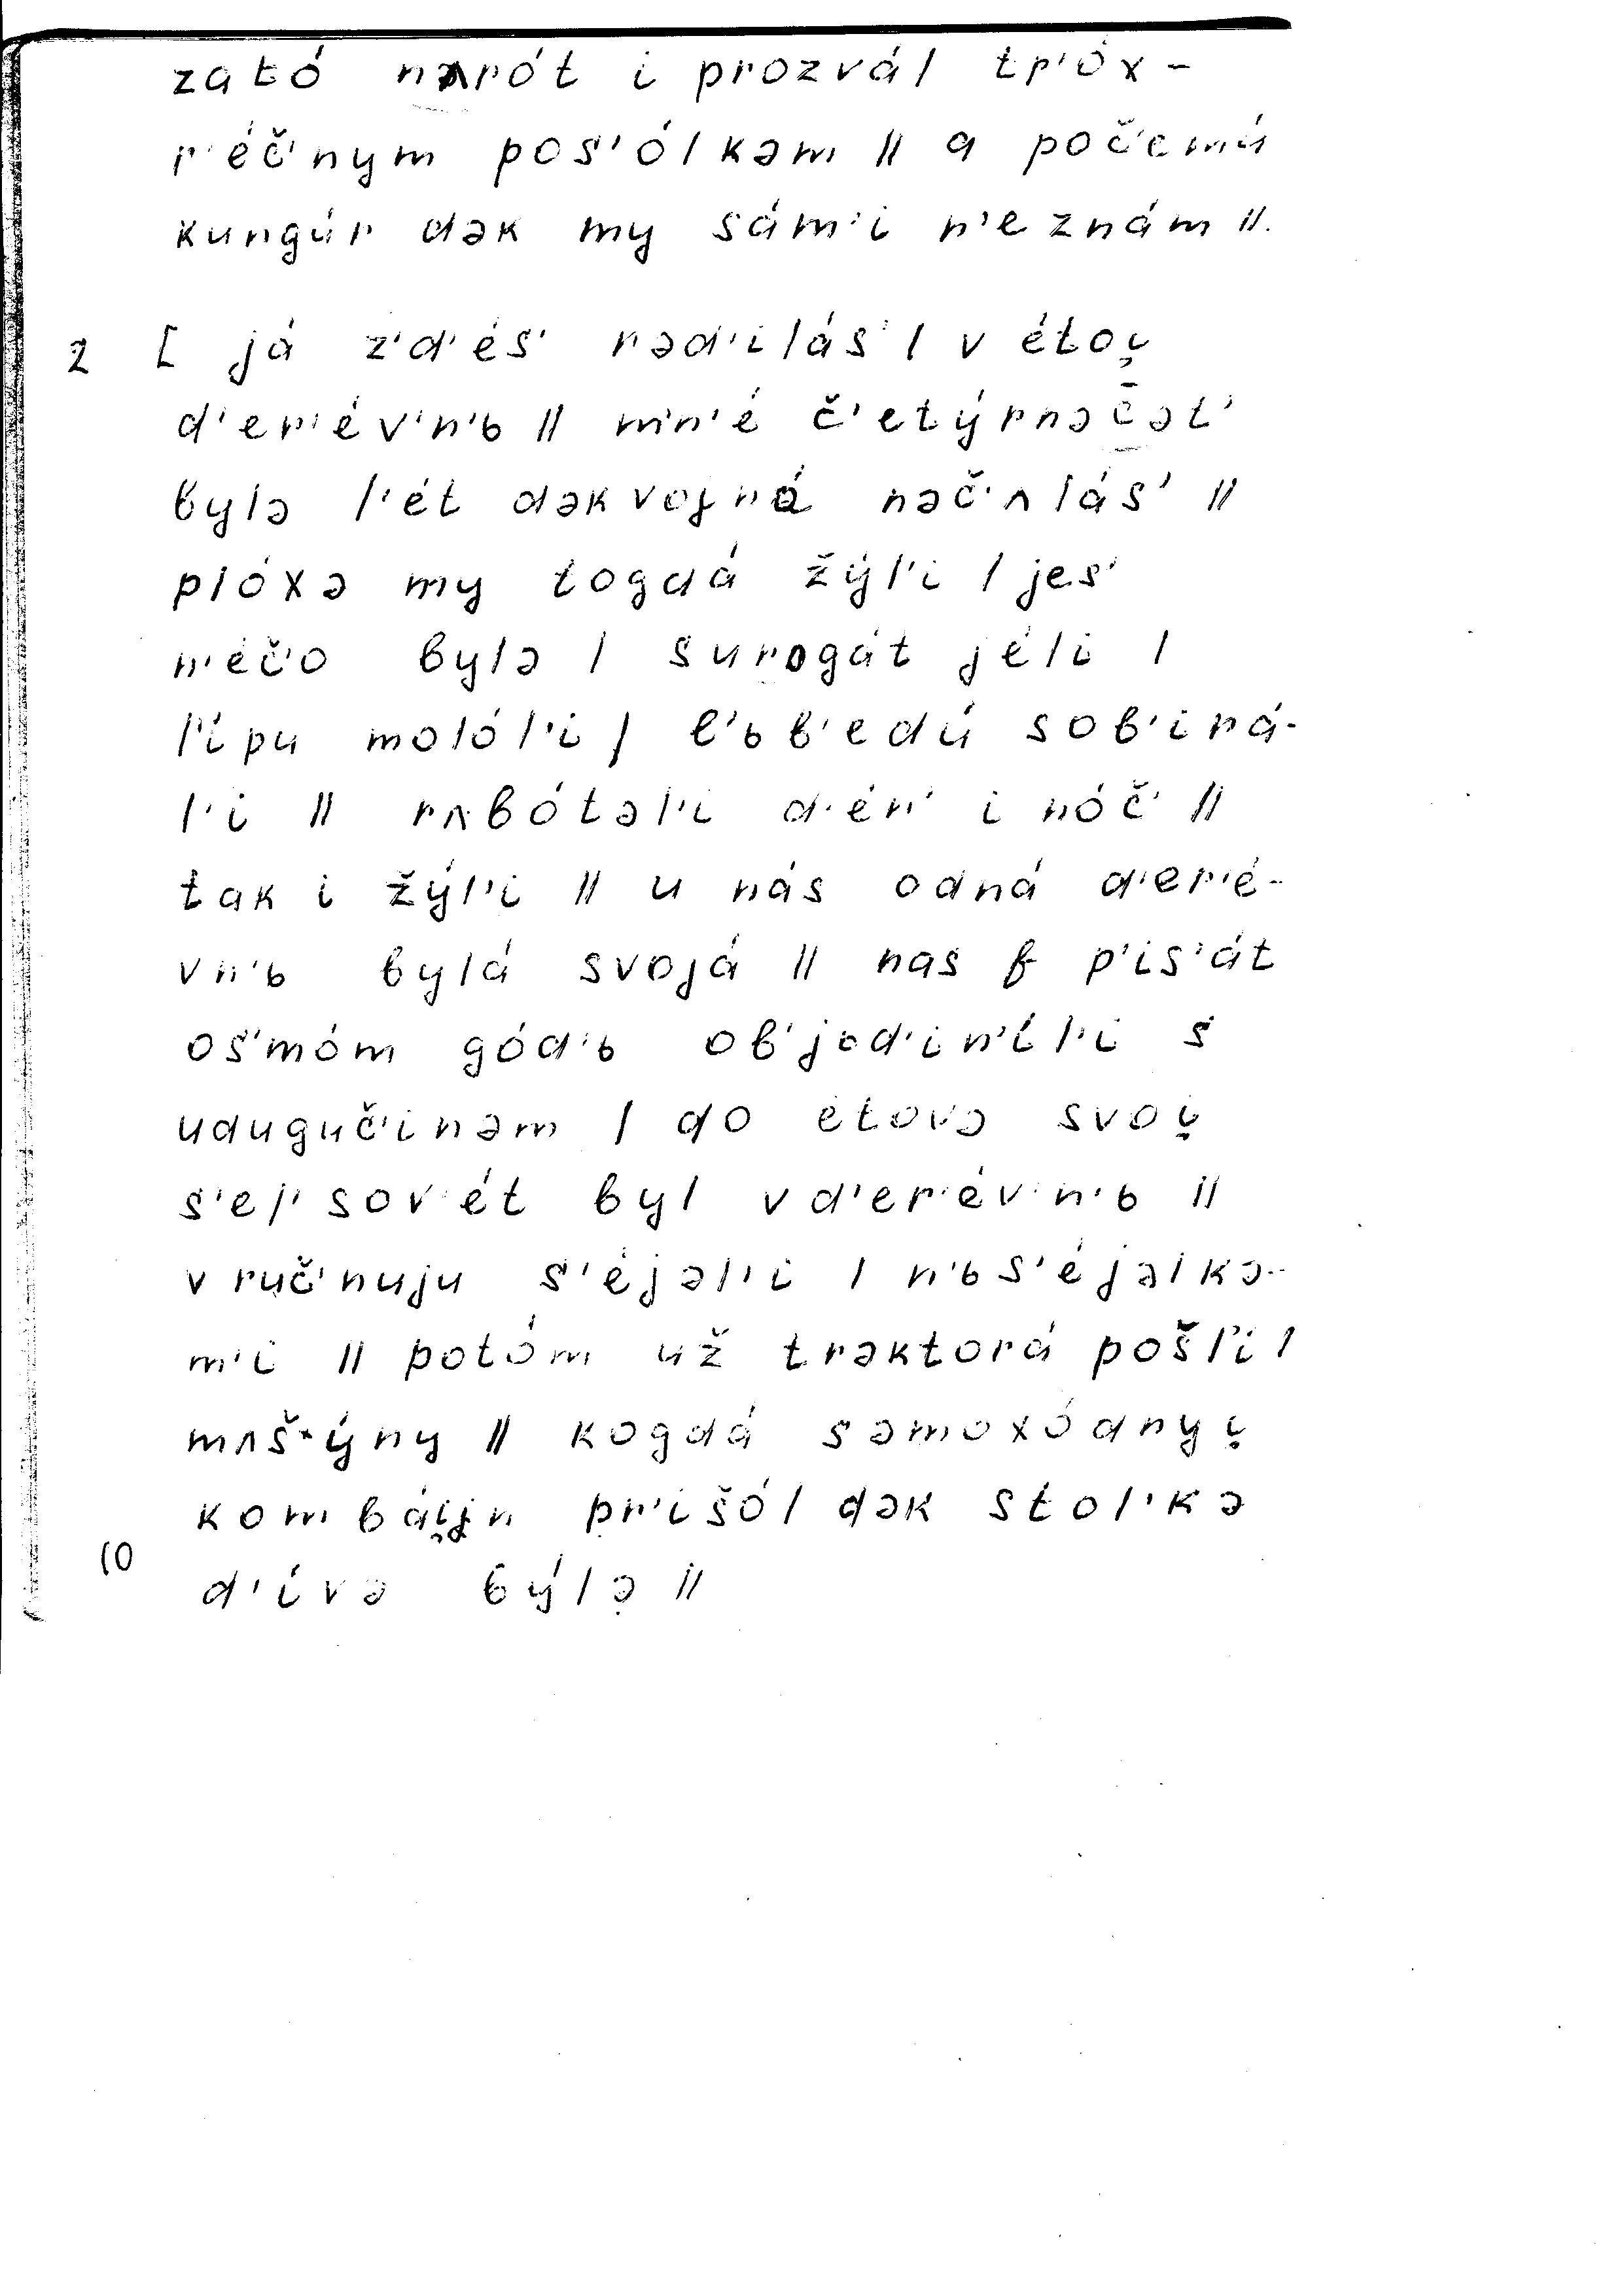 zató nʌrót i prozvál tr'óx-
r'éč'nym pos'ólkəm || a počemú
kungúr dək my sám'i n'e znám ||.
2 [ já z'd'és' rəd'ilás' | v étoi̯
d'er'évn'ь || mn'é č'etýrnəc̄ət'
bylə l'ét dək vojná nəč'ʌlás' ||
plóxə my togdá žýl'i | jes'
n'éčo bylə | surogát jéli |
l'ípu molól'i | l'ьb'edú sob'irá-
l'i || rʌbótəl'i d'én' i nóč' ||
tak i žýl'i || u nás odná d'er'é-
vn'ь bylá svojá || nas f p'is'át
os'móm gód'ь ob'jed'in'íl'i s
udugučinəm | do étovə svoi̯
s'el'sov'ét byl v d'er'évn'ь ||
v ruč'nuju s'éjəl'i | n'ьs'éjəlkə-
m'i || potóm už trəktorá pošl'í |
mʌšýny || kogdá səmoxódnyi̯
kombái̯n pr'išól dək stol'kə
10 d'ívə býlə ||